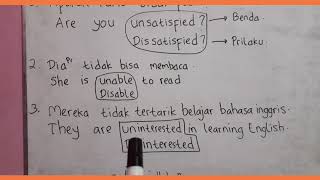 Are you unsatisfied? → Benda
Dissatisfied? → Prilaku
2. Dia pr tidak bisa membaca.
She is unable to read
Disable
3. Mereka tidak tertarik belajar bahasa inggris.
They are uninterested in learning English.
interested